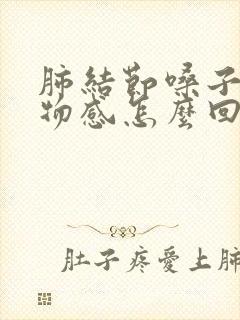 肺結節嗓子
物感怎麼回
肚子疼愛上肺